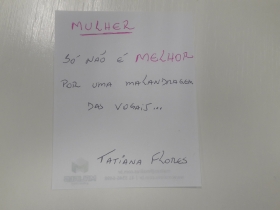 MULHER
SÓ NÃO É MELHOR
POR UMA MALANDRAGEM
DAS VOGAIS...
TATIANA FLORES